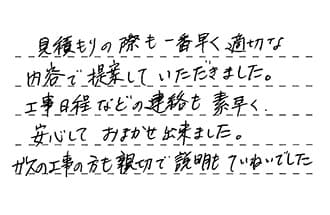 見積もりの際も一番早く適切な
内容で提案していただきました。
工事日程などの連絡も素早く、
安心しておまかせ出来ました。
ガスの工事の方も親切で説明もていねいでした